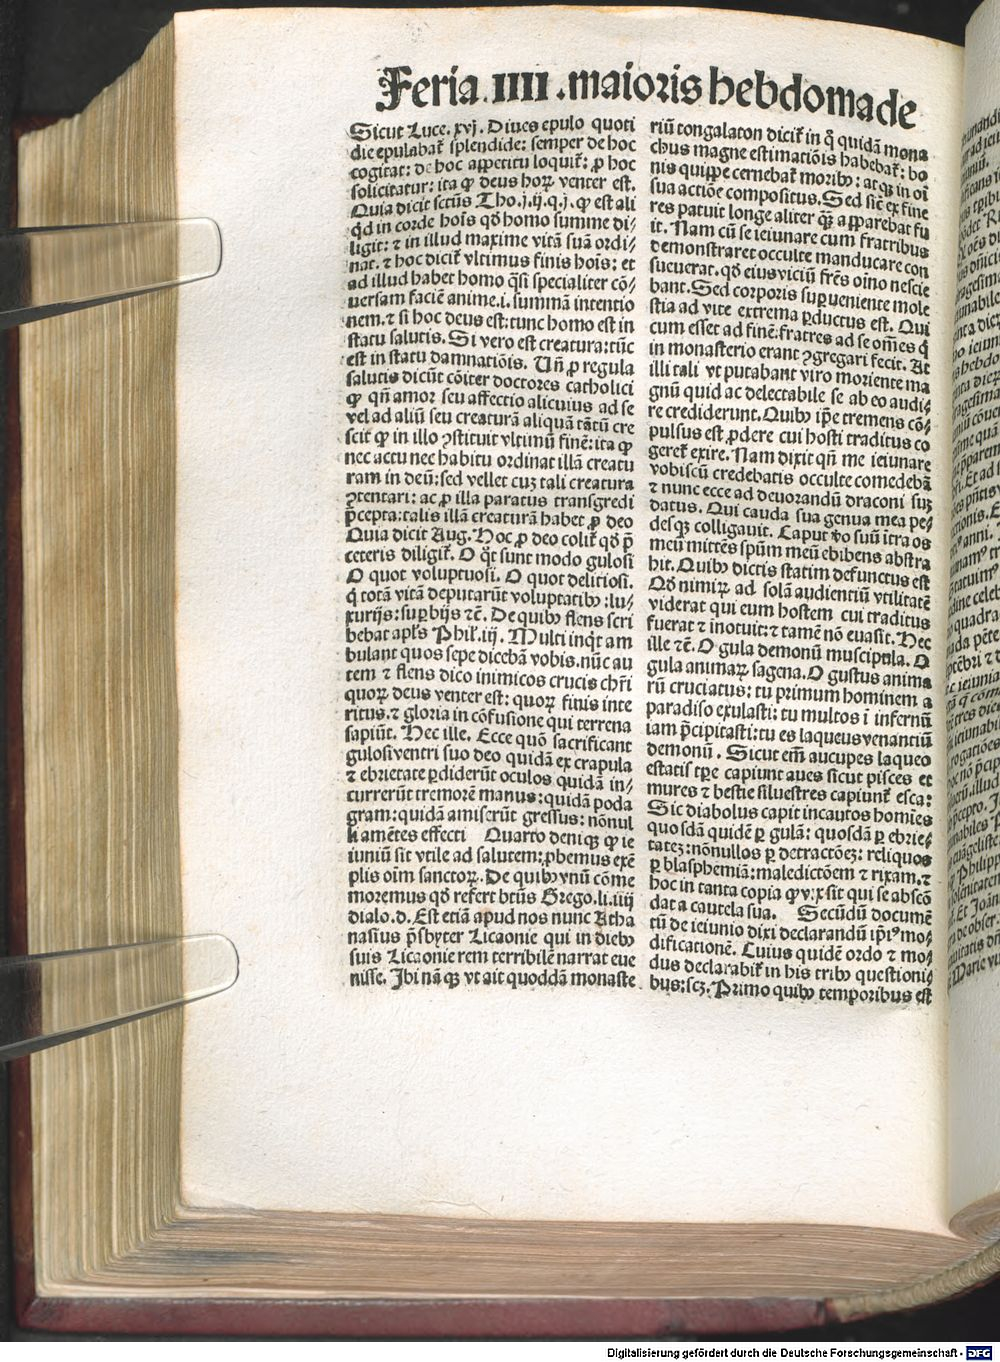 Feria .IIII .maioris hebdomade
Sicut Luce. xvj. Diues epulo quoti
die epulabat᷑ splendide: semper de hoc
cogitat: de hoc appetitu loquit᷑: ꝓ hoc
solicitatur: ita ꝙ deus horꝝ venter est.
Quia dicit sctūs Tho.j.ij.q.j. ꝙ est ali
qd̄ in corde hoīs qd̄ homo summe di⸗
ligit: ⁊ in illud maxime vitā suā ordi⸗
nat. ⁊ hoc dicit᷑ vltimus finis hoīs: et
ad illud habet homo qͣsi specialiter cō⸗
uersam faciē anime.i. summā intentio
nem. ⁊ si hoc deus est: tunc homo est in
statu salutis. Si vero est creatura: tūc
est in statu damnatiōis. Un̄ ꝓ regula
salutis dicūt cōiter doctores catholici
ꝙ qn̄ amor seu affectio alicuius ad se
vel ad aliū seu creaturā aliquā tātū cre
scit ꝙ in illo ꝯstituit vltimū finē: ita ꝙ
nec actu nec habitu ordinat illā creatu
ram in deū: sed vellet cuꝫ tali creatura
ꝯtentari: ac ꝓ illa paratus transgredi
p̄cepta: talis illā creaturā habet ꝓ deo
Quia dicit Aug. Hoc ꝓ deo colit᷑ qd̄ p̄
ceteris diligit᷑. O qͦt sunt modo gulosi
O quot voluptuosi. O quot delitiosi.
q̇ totā vitā deputarūt voluptatibꝰ: lu⸗
xurijs: suꝑbijs ⁊ē. De quibꝰ flens scri
bebat apl̄s Phil᷑.iij. Multi inqͥt am
bulant quos sepe dicebā vobis. nūc au
tem ⁊ flens dico inimicos crucis chr̄i
quorꝝ deus venter est: quorꝝ finis inte
ritus. ⁊ gloria in cōfusione qui terrena
sapiūt. Hec ille. Ecce quō sacrificant
gulosi ventri suo deo quidā ex crapula
⁊ ebrietate ꝑdiderūt oculos quidā in⸗
currerūt tremorē manus: quidā poda
gram: quidā amiserūt gressus: nōnul
li amētes effecti   Quarto deniqꝫ ꝙ ie
iuniū sit vtile ad salutem: ꝓbemus exē
plis oīm sanctorꝝ. De quibꝰ vnū cōme
moremus qd̄ refert btūs Grego.li.iiij
dialo.d. Est etiā apud nos nunc Atha
nasius p̄sbyter Licaonie qui in diebꝰ
suis Licaonie rem terribilē narrat eue
nisse. Ibi nāqꝫ vt ait quoddā monaste
riū tongalaton dicit᷑ in q̊ quidā mona
chus magne estimatiōis habebat᷑: bo
nis quippe cernebat᷑ moribꝰ: atqꝫ in oī
sua actiōe compositus. Sed sic̄ ex fine
res patuit longe aliter qꝫ apparebat fu
it. Nam cū se ieiunare cum fratribus
demonstraret occulte manducare con
sueuerat. qd̄ eius viciū frēs oīno nescie
bant. Sed corporis suꝑueniente mole
stia ad vite extrema ꝑductus est. Qui
cum esset ad finē: fratres ad se om̄es q̇
in monasterio erant ꝯgregari fecit. At
illi tali vt putabant viro moriente ma
gnū quid ac delectabile se ab eo audi⸗
re crediderunt. Quibꝰ ip̄e tremens cō⸗
pulsus est ꝓdere cui hosti traditus co
geret᷑ exire. Nam dixit qn̄ me ieiunare
vobiscū credebatis occulte comedebā
⁊ nunc ecce ad deuorandū draconi suꝫ
datus. Qui cauda sua genua mea pe⸗
desqꝫ colligauit. Caput v̊o suū ītra os
meū mittēs spūm meū ebibens abstra
hit. Quibꝰ dictis statim defunctus est
Qd̄ nimirꝝ ad solā audientiū vtilitatē
viderat qui eum hostem cui traditus
fuerat ⁊ inotuit: ⁊ tamē nō euasit. Hec
ille ⁊ē. O gula demonū muscipula. O
gula animarꝝ sagena. O gustus anima
rū cruciatus: tu primum hominem a
paradiso exulasti: tu multos ī infernū
iam p̄cipitasti: tu es laqueus venantiū
demonū . Sicut em̄ aucupes laqueo
estatis tp̄e capiunt aues sicut pisces et
mures ⁊ bestie siluestres capiunt᷑ esca:
Sic diabolus capit incautos homīes
quosdā quidē ꝑ gulā: quosdā ꝑ ebrie⸗
tatēꝫ: nōnullos ꝑ detractōeꝫ: reliquos
ꝑ blasphemiā: maledictōem ⁊ rixam. ⁊
hoc in tanta copia ꝙ vix sit qui se abscō
dat a cautela sua.   Secūdū documē
tū de ieiunio dixi declarandū ip̄iꝰ mo⸗
dificationē. Cuius quidē ordo ⁊ mo⸗
dus declarabit᷑ in his tribꝰ questioni⸗
bus: scꝫ. Primo quibꝰ temporibus est
Digitalisierung gefördert durch die Deutsche Forschungsgemeinschaft - DFG